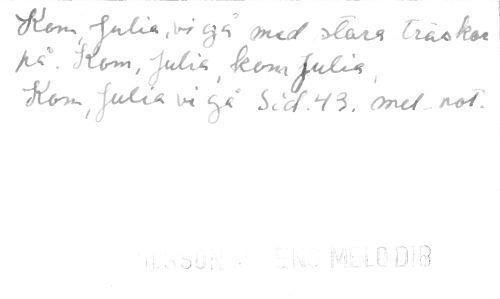 Kom, Julia, vi gå med stara träskor
på. Kom, Julia, kom Julia,
Kom, Julia vi gå Sid. 43. mel-not.
ENS MELODIB